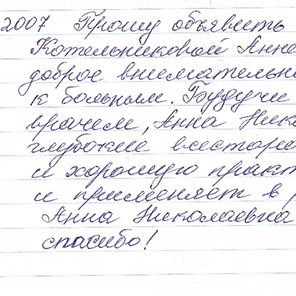 2007 Прошу объявить
Котельниковой Анне
доброе внимательн
к больным. Будучи
врачем, Анна Ник
глубокие всесторо
и хорошую практ
и применяет в р
Анна Николаевна
спасибо!